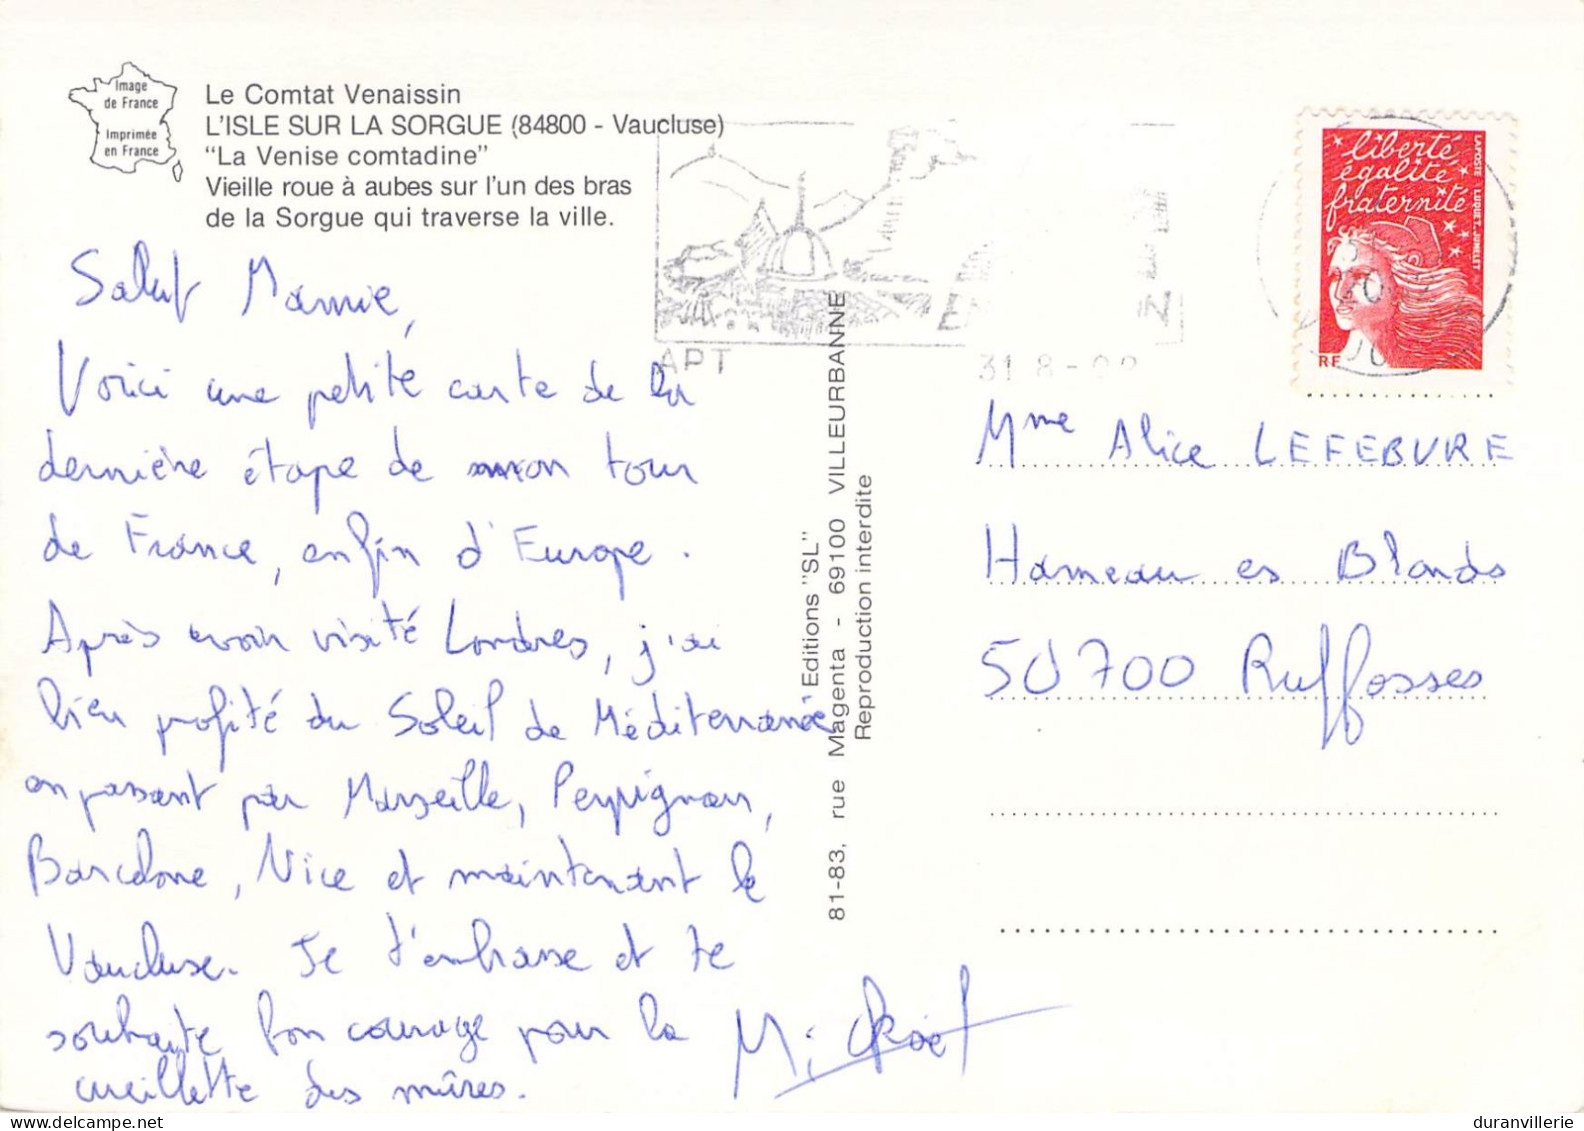 Image
de France
Imprimée
en France
Le Comtat Venaissin
L'ISLE SUR LA SORGUE (84800 - Vaucluse)
"La Venise comtadine"
Vieille roue à aubes sur l'un des bras
de la Sorgue qui traverse la ville.
Salut Mamie,
Voici une petite carte de la
dernière étape de mon tour
de France, enfin d'Europe.
Après avoir visité Londres, j'ai
bien profité du Soleil de Méditerranée
en passant par Marseille, Perpignan,
Barcelone, Nice et maintenant le
Vaucluse. Je t'embrasse et te
souhaite bon courage pour la
cueillette des mûres.
Editions "SL"
81-83, rue Magenta - 69100 VILLEURBANNE
Reproduction interdite
APT
31 8 - 02
liberté
égalité
fraternité
LAPOSTE LUQUET_JUMELET
RF
Mme Alice LEFEBVRE
Hameau es Blonds
50700 Ruffosses
duranvillerie